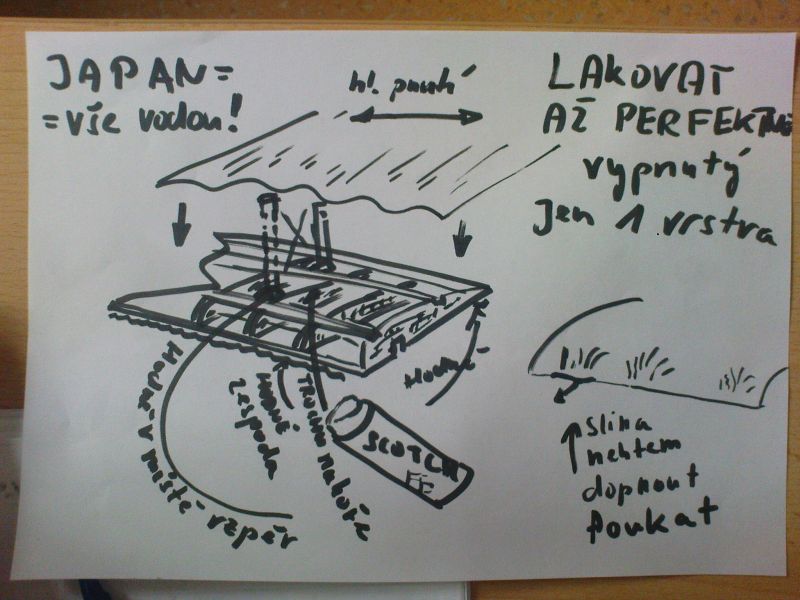 JAPAN=
=vše vodou!
hl. pnutí
LAKOVAT
AŽ PERFEKTNĚ
vypnutý
jen 1 vrstva
Hodně v místě vzpěr
HODNĚ
zespoda
TROCHU nahoře
Hodně
SCOTCH
slina
nehtem
dopnout
foukat